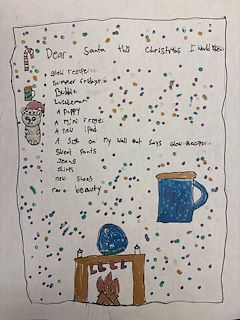 Dear Santa this Christmas I would like:
Glow recipe
Summer fridays
Bubble
Lululemon
A puppy
A mini fridge
A new ipad
A sign on my wall that says Glow recipe
Sweat pants
Jeans
shirts
new shoes
rare beauty